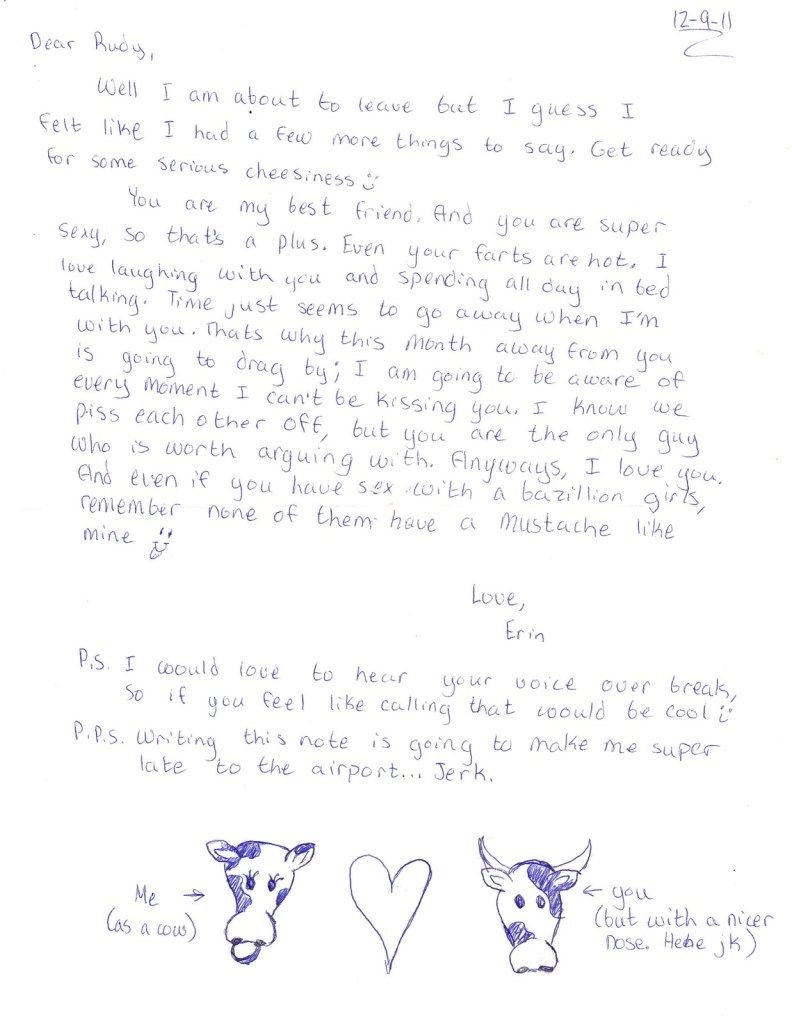 12-9-11
Dear Rudy,
Well I am about to leave but I guess I
felt like I had a few more things to say. Get ready
for some serious cheesiness
You are my best friend. And you are super
sexy, so that's a plus. Even your farts are hot. I
love laughing with you and spending all day in bed
talking. Time just seems to go away when I'm
with you. Thats why this month away from you
is going to drag by; I am going to be aware of
every moment I can't be kissing you. I know we
piss each other off, but you are the only guy
who is worth arguing with. Anyways, I love you.
And even if you have sex with a bazillion girls,
remember none of them have a mustache like
mine
Love,
Erin
P.S. I would love to hear your voice over break,
so if you feel like calling that would be cool
P.P.S. Writing this note is going to make me super
late to the airport... Jerk.
Me
(as a cow)
you
(but with a nicer
nose. Hehe jk)